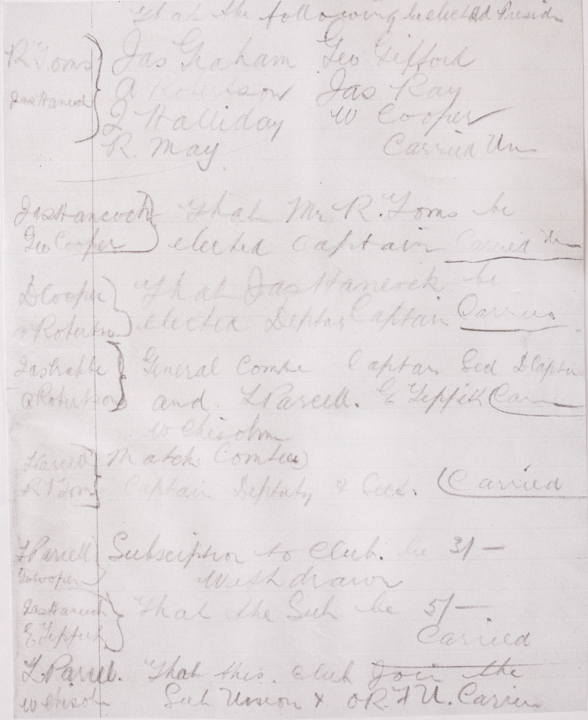 That the following be elected Presid
R Toms Jas Graham Geo Gifford
Jas Hancock A Robertson Jas Ray
J Halliday W Cooper
R. May Carried Un
Jas Hancock That Mr R. Toms be
Geo Cooper elected Captain Carried Un
D Cooper That Jas Hancock be
A Robertson elected Deptuy Captain Carried
General Comtee Captain Sec D Captn
A Robertson and L Parcell. E Tippett Car
W Chisolm
Match Comtee
R Toms Captain Deptuty & Sect. Carried
L Parcell Subscription to Club. be 3/-
Geo Cooper Withdrawn
Jas Hancock That the Sub be 5/-
E Tippett Carried
L Parcel. That this. Club Join the
W Chisolm Sub Union & O R F U. Carrie